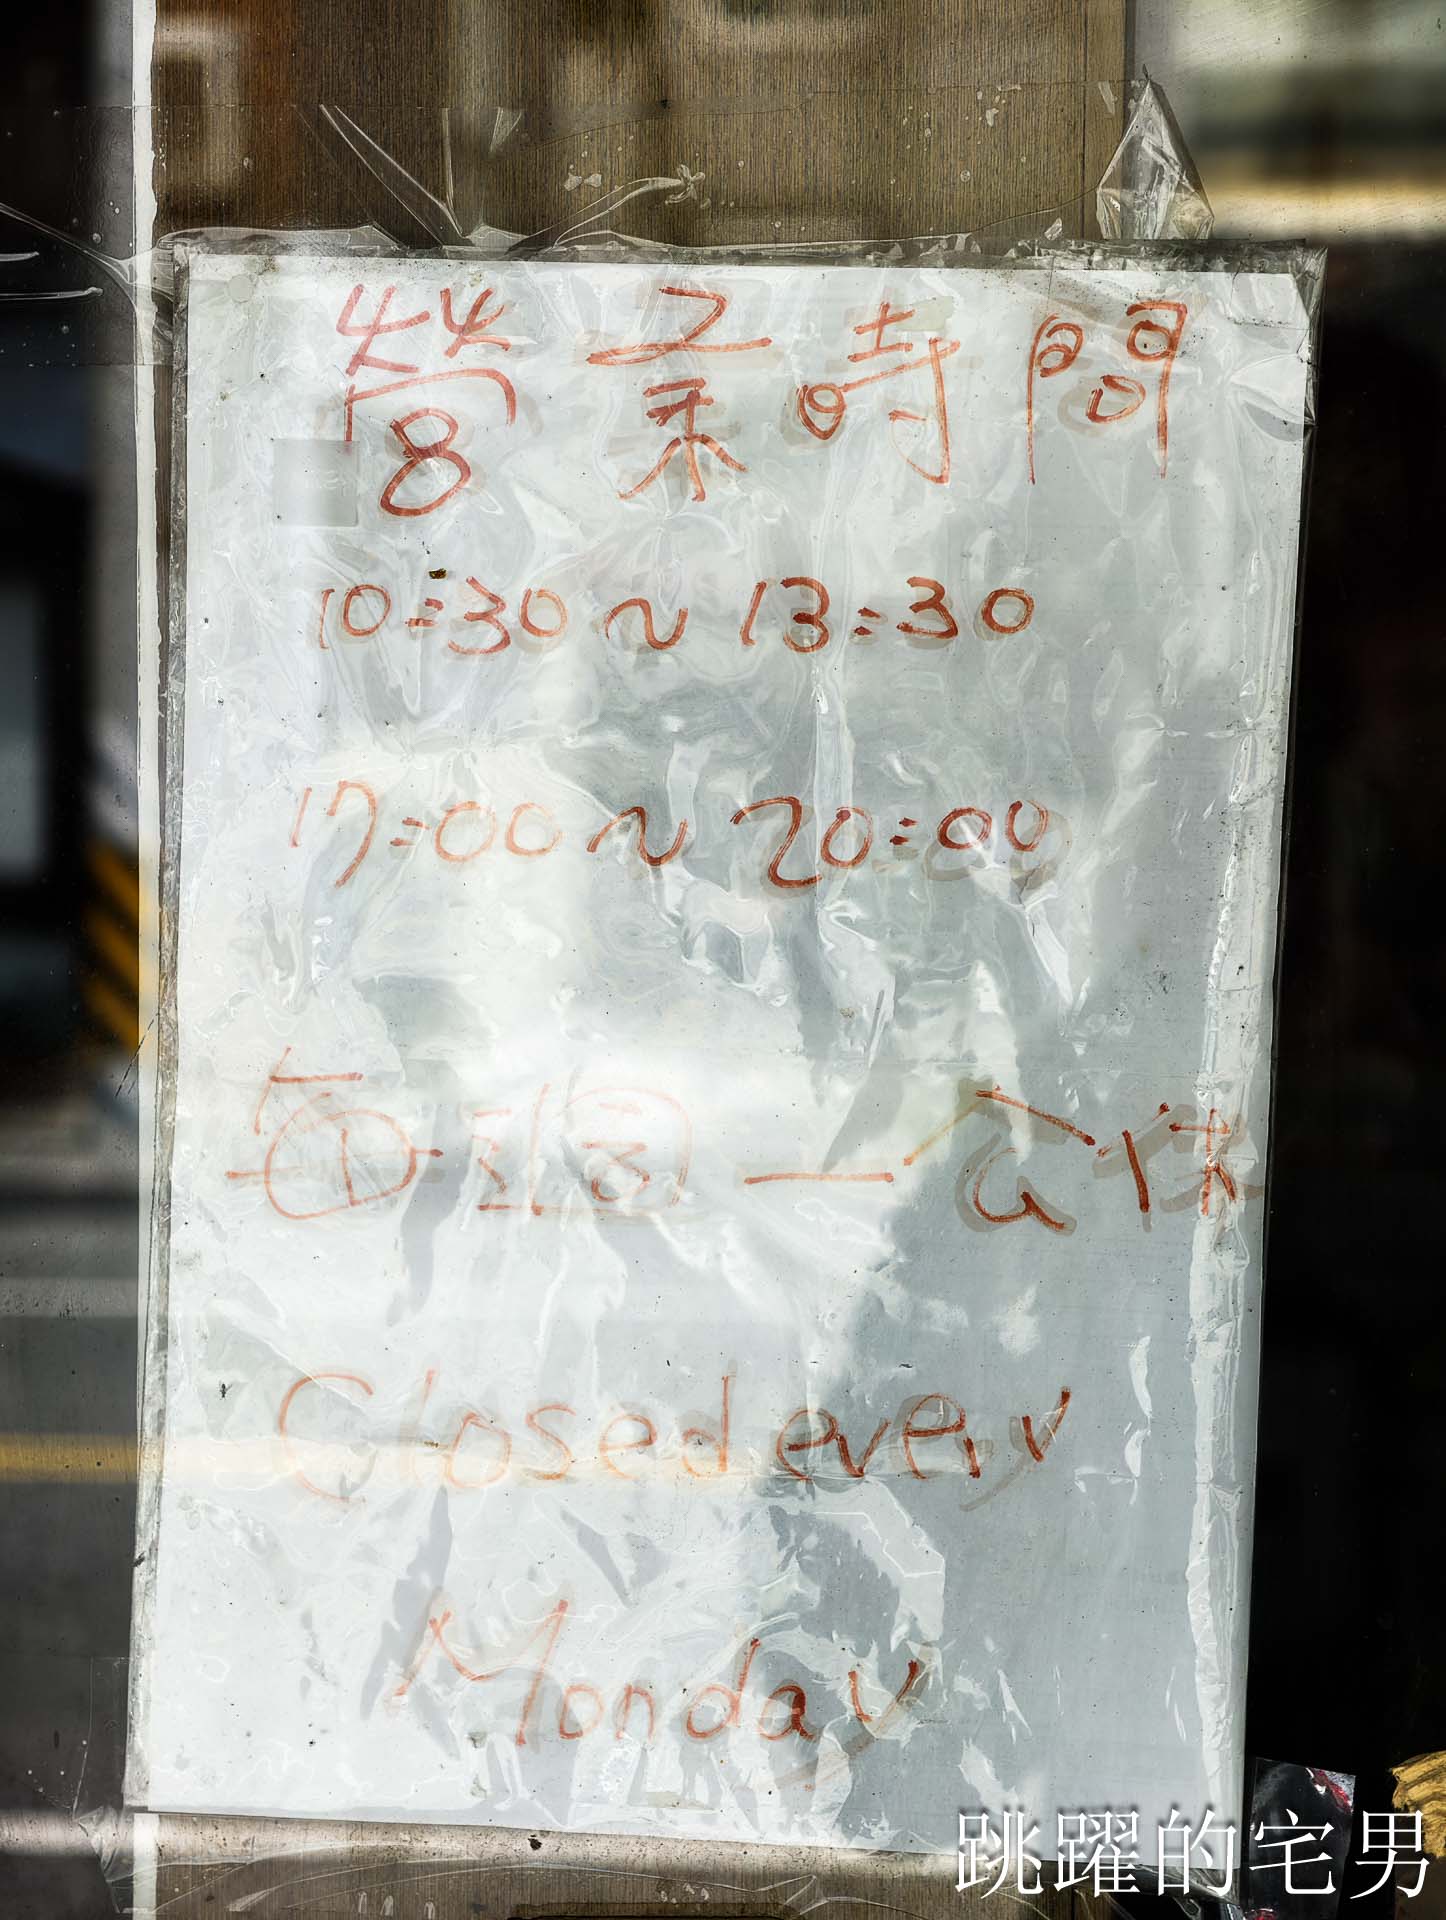 營業時間
10:30~13:30
17:00~20:00
每週一公休
Closed every
Monday
跳躍的宅男